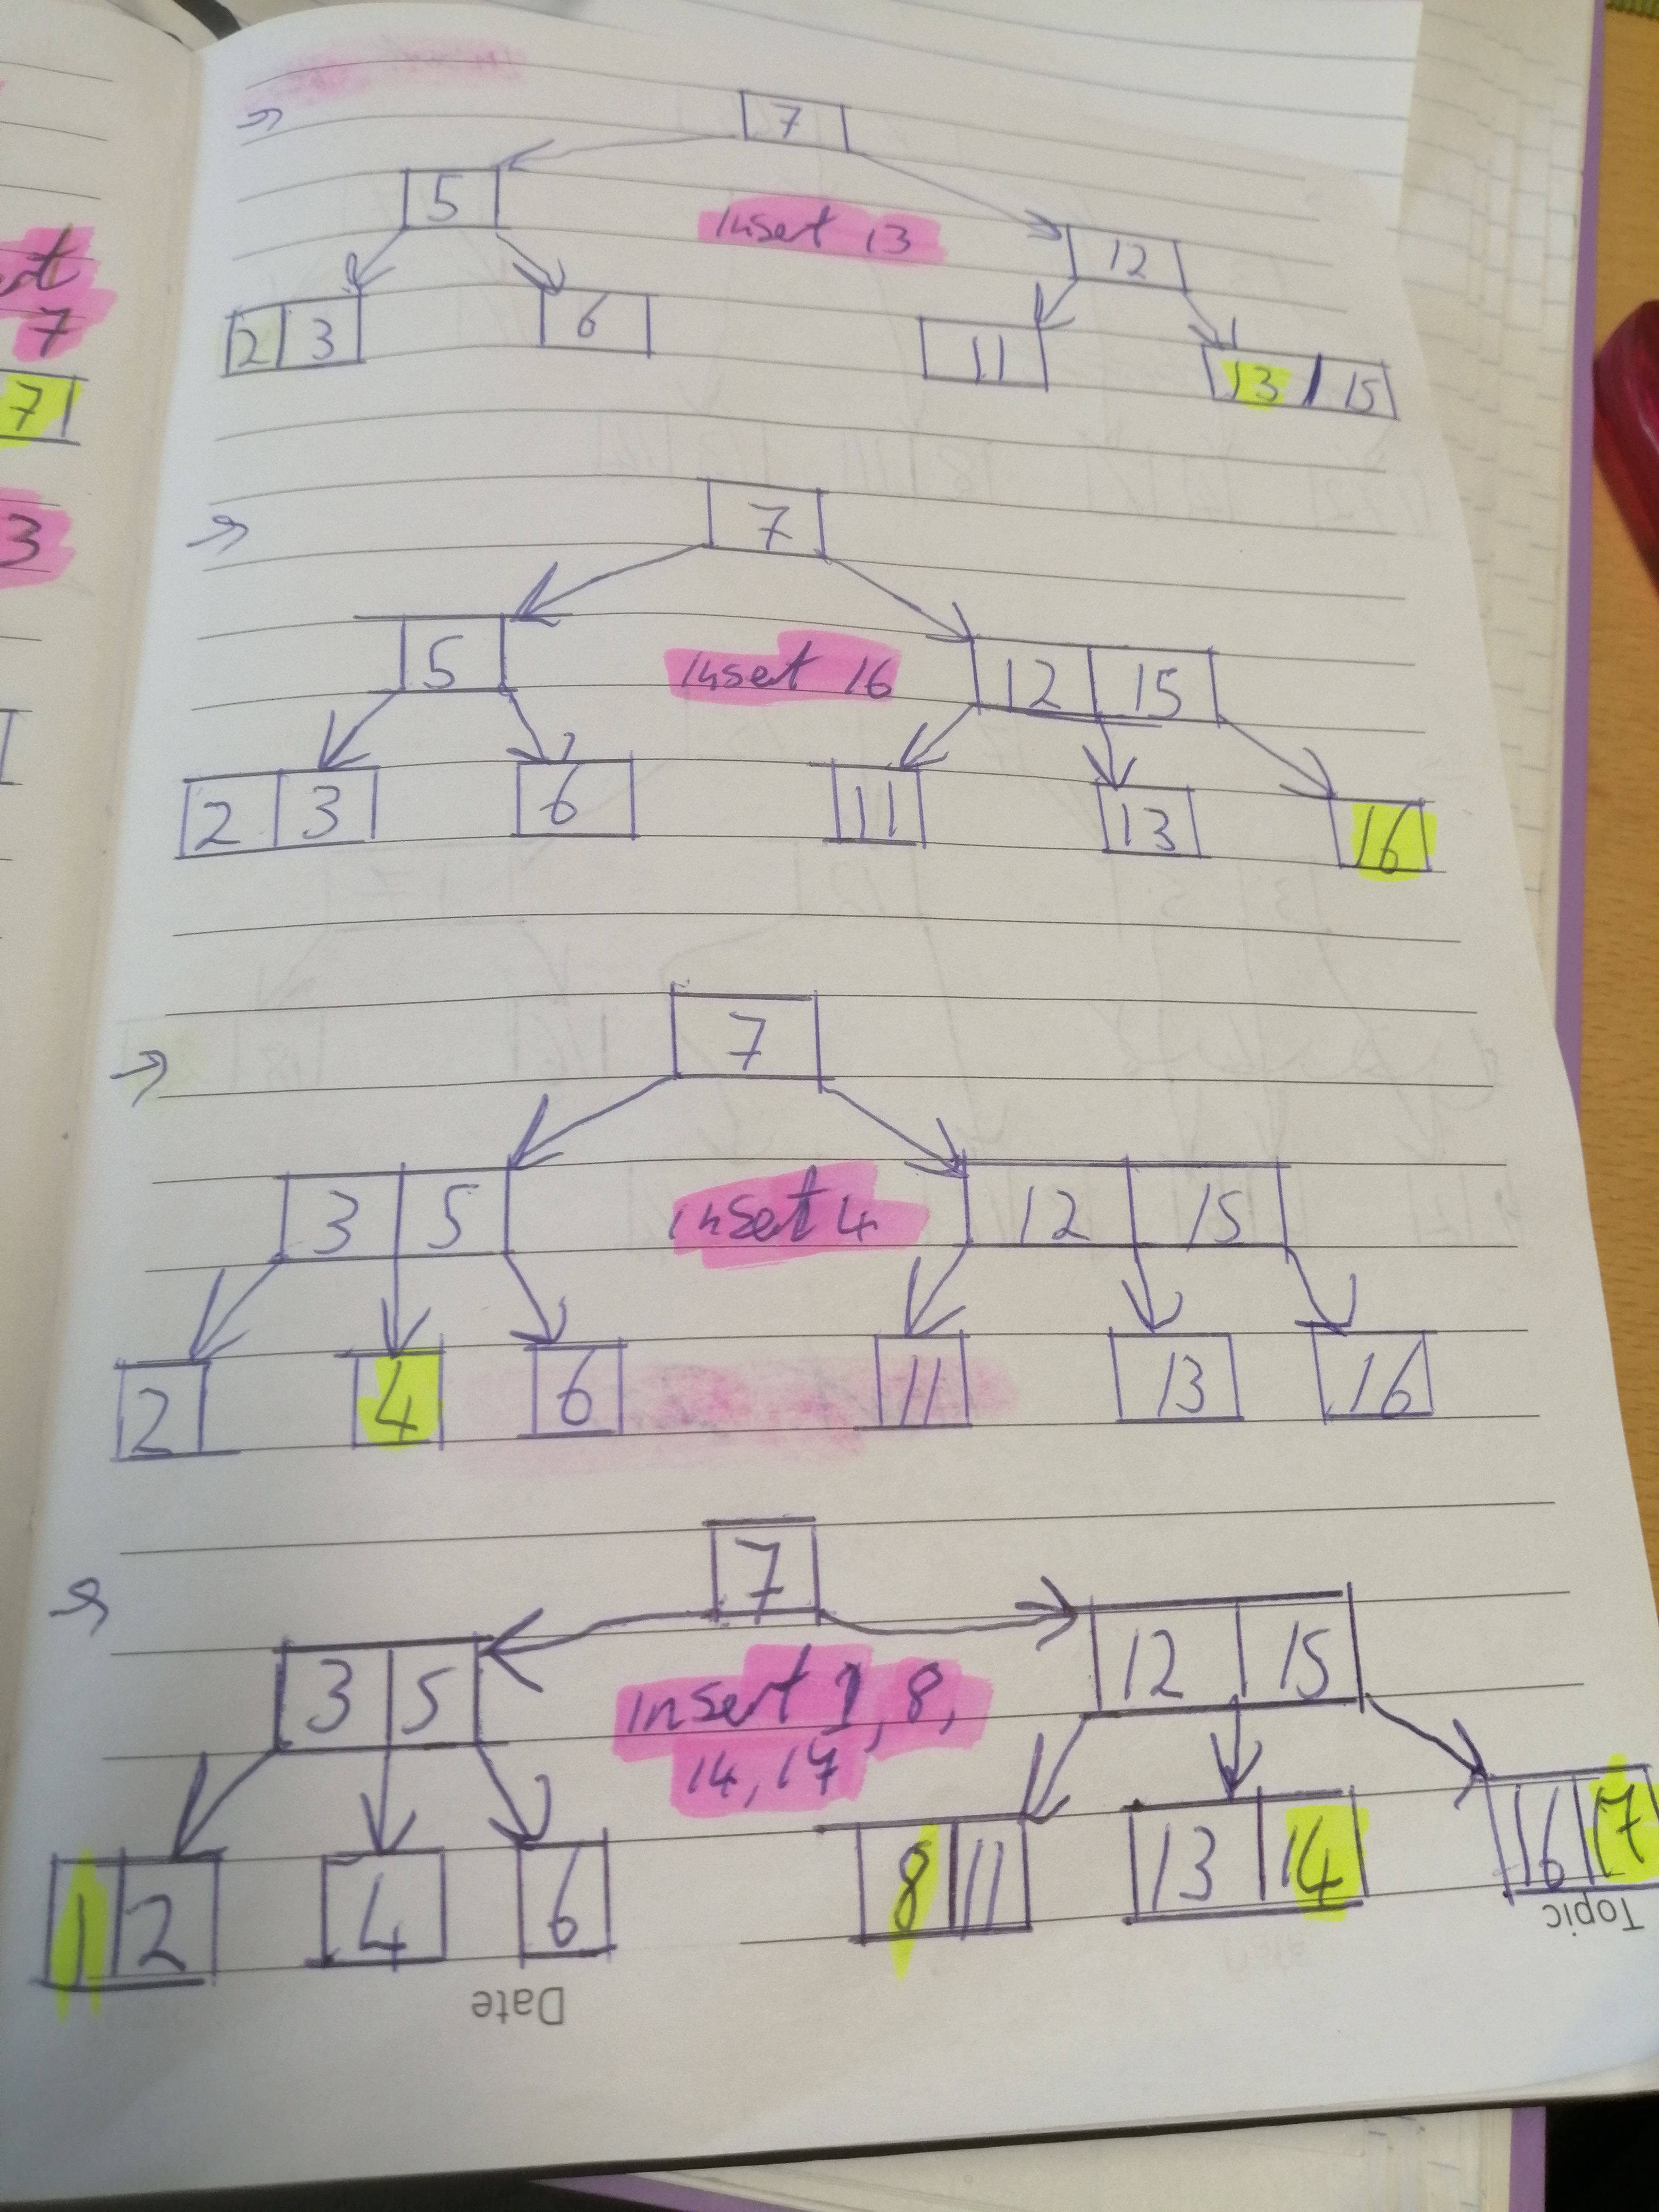 7
5
Insert 13
12
2 3
6
11
13 15
7
5
Insert 16
12 15
2 3
6
11
13
16
7
3 5
insert 4
12 15
2
4
6
11
13
16
7
3 5
insert 1, 8,
14, 17
12 15
1 2
4
6
8 11
13 14
16 17
Date
Topic
7
7
3